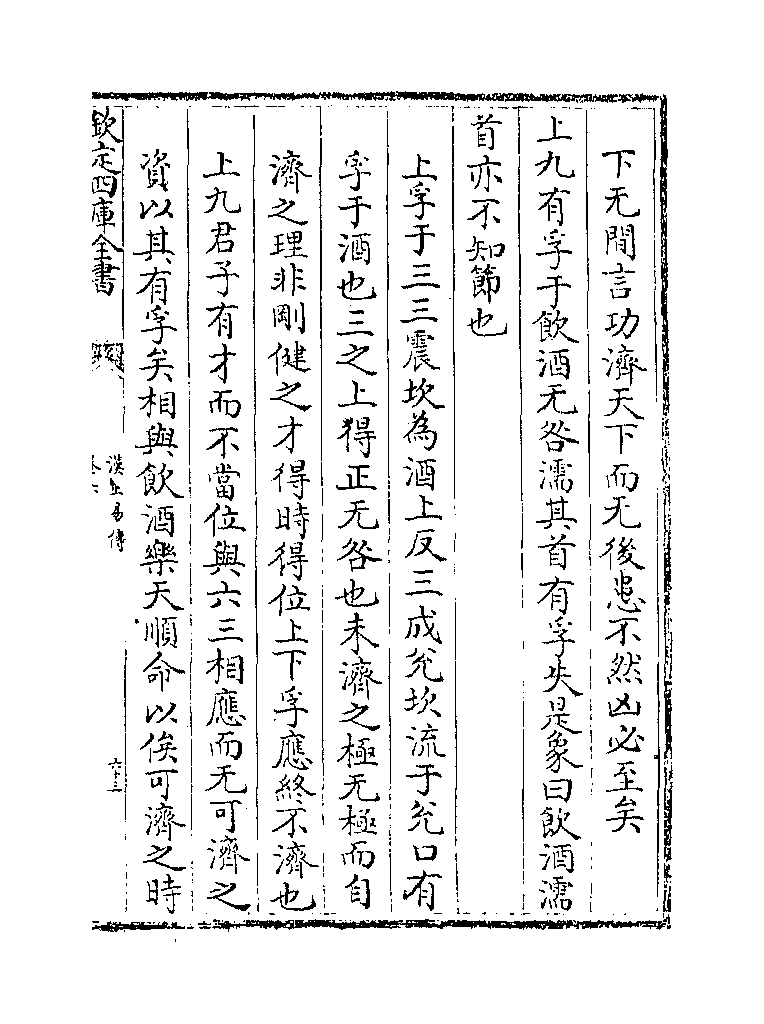 下无間言功濟天下而无後患不然凶必至矣
上九有孚于飲酒无咎濡其首有孚失是象曰飲酒濡
首亦不知節也
上孚于三三震坎為酒上反三成兊坎流于兊口有
孚于酒也三之上得正无咎也未濟之極无極而自
濟之理非剛健之才得時得位上下孚應終不濟也
上九君子有才而不當位與六三相應而无可濟之
資以其有孚矣相與飲酒樂天順命以俟可濟之時
欽定四庫全書
漢上易傳
六十三